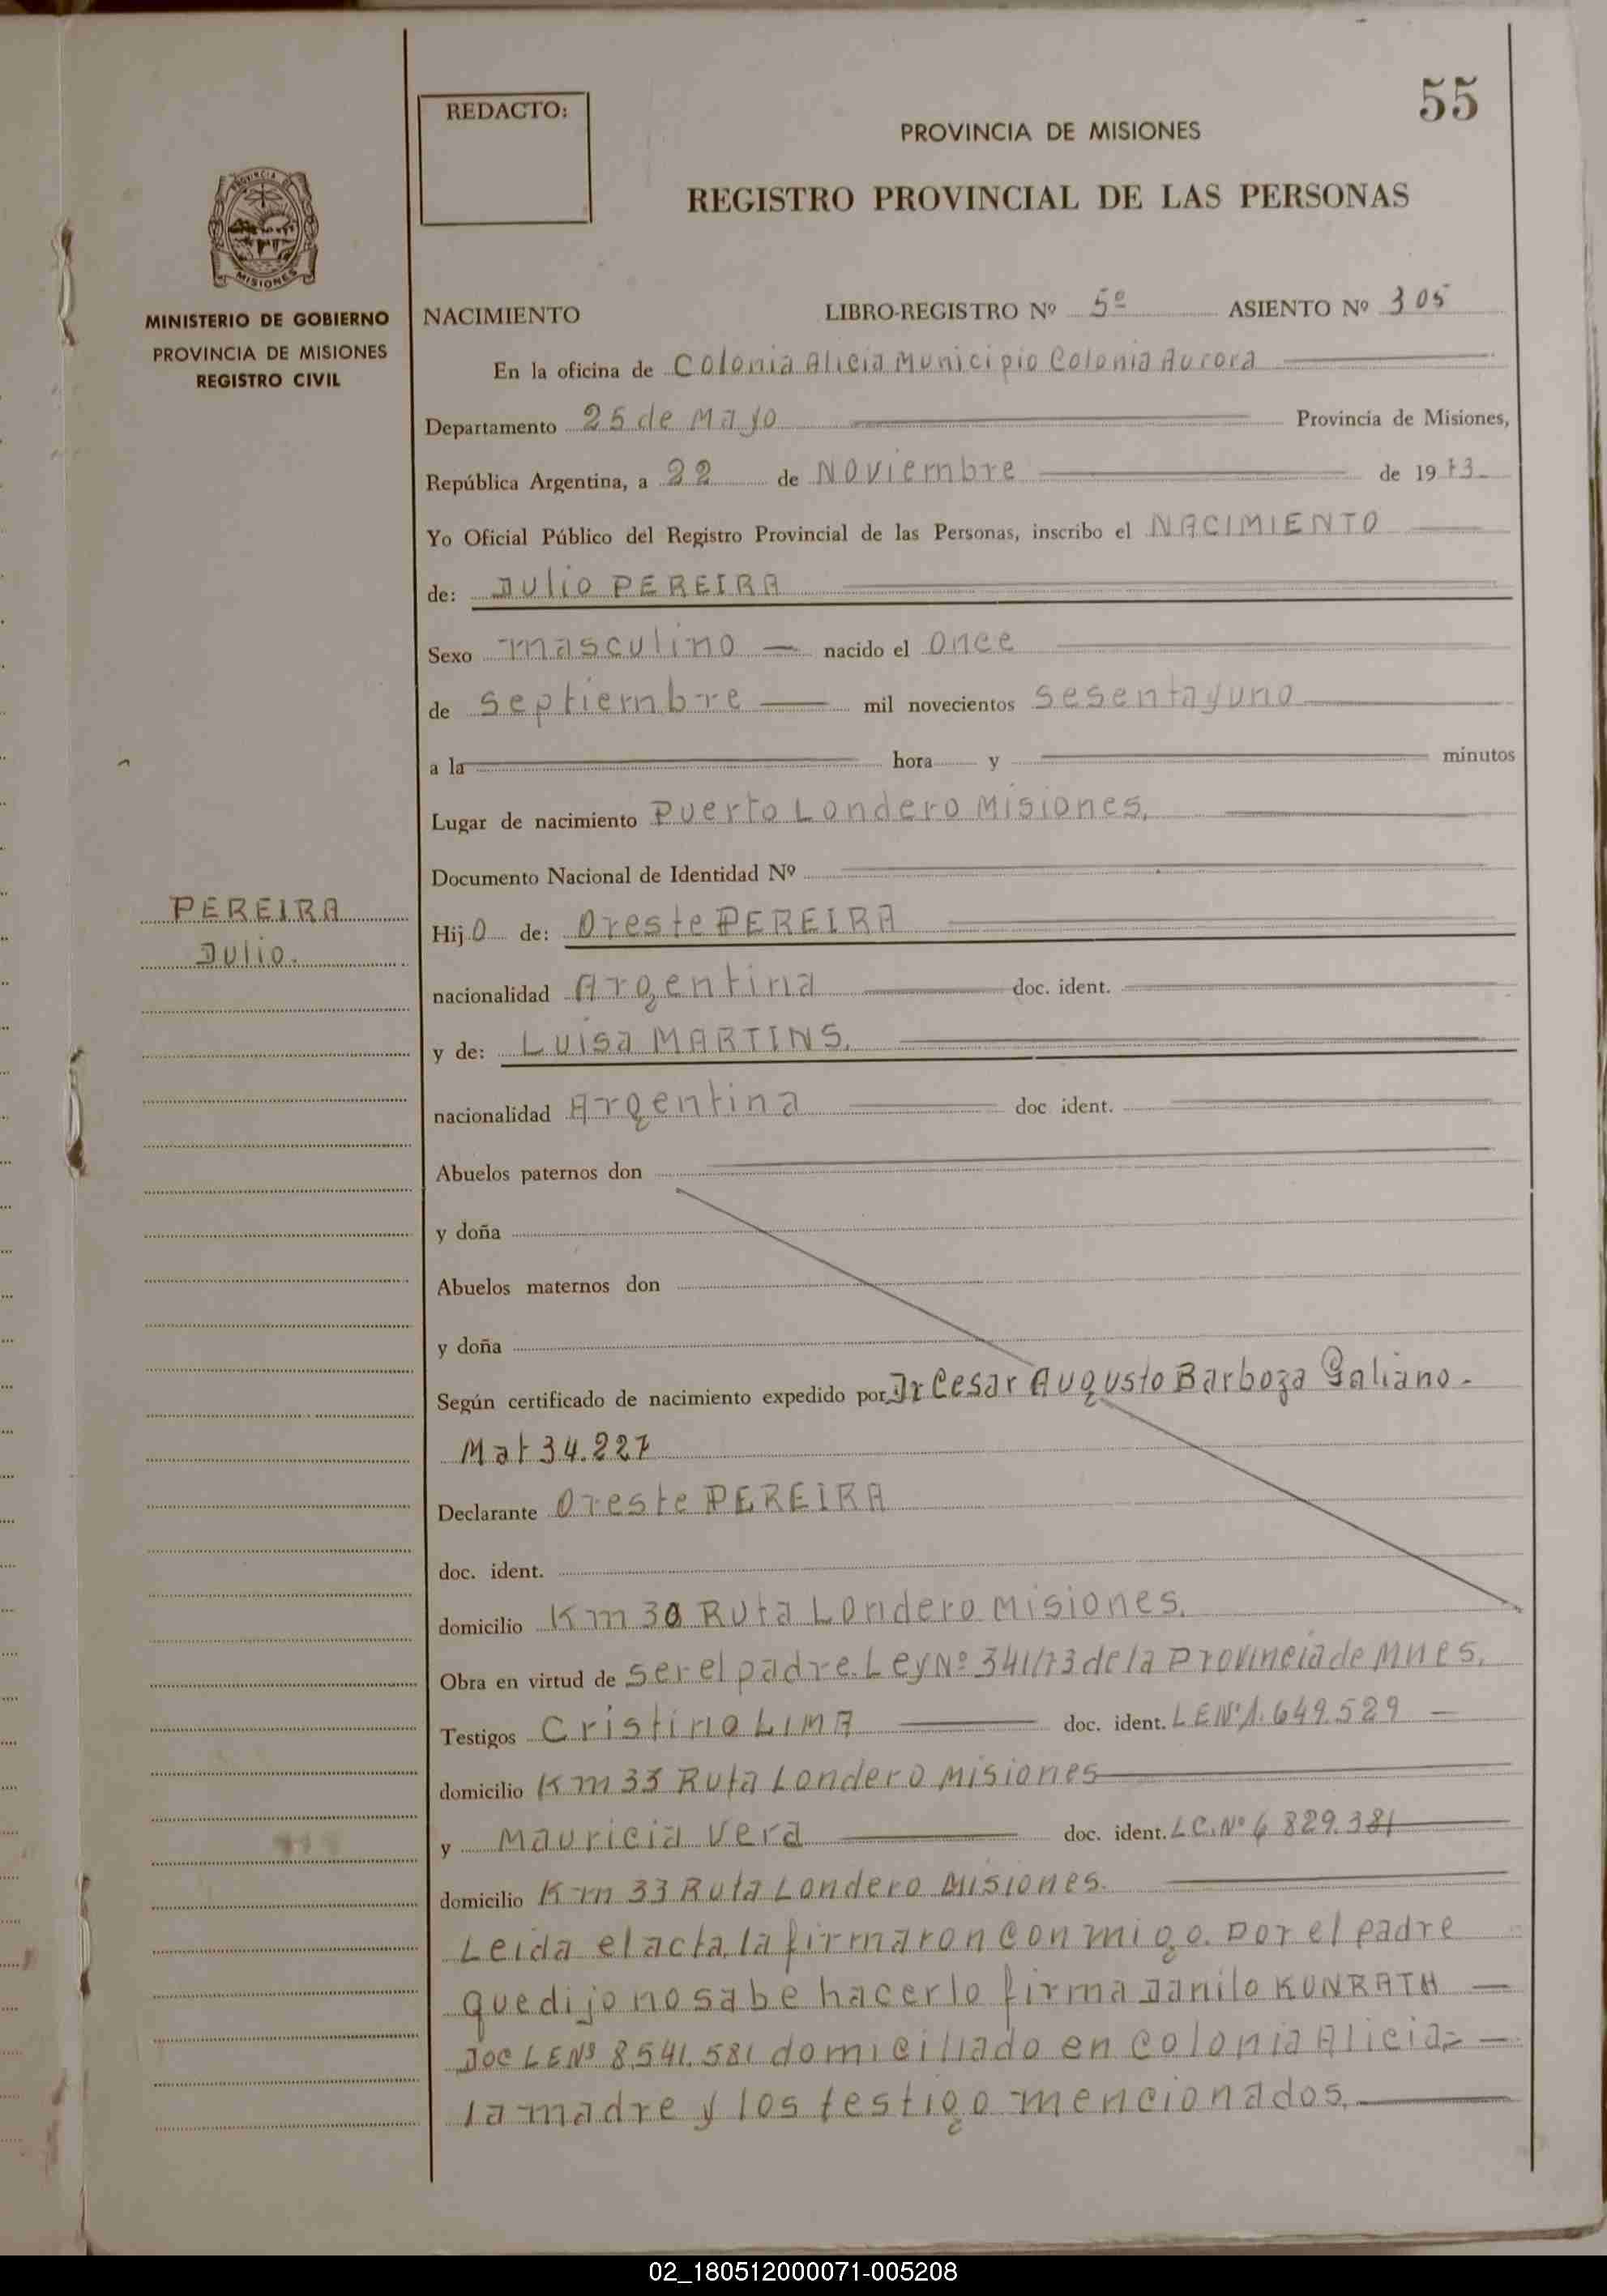 55
REDACTO:
PROVINCIA DE MISIONES
REGISTRO PROVINCIAL DE LAS PERSONAS
PROVINCIA DE
MISIONES
MINISTERIO DE GOBIERNO
PROVINCIA DE MISIONES
REGISTRO CIVIL
NACIMIENTO LIBRO-REGISTRO Nº 5º ASIENTO Nº 305
En la oficina de Colonia Alicia Municipio Colonia Aurora
Departamento 25 de Mayo Provincia de Misiones,
República Argentina, a 22 de Noviembre de 1973
Yo Oficial Público del Registro Provincial de las Personas, inscribo el NACIMIENTO
de: Julio PEREIRA
Sexo masculino nacido el once
de septiembre mil novecientos sesenta y uno
a la hora y minutos
Lugar de nacimiento Puerto Londero Misiones.
Documento Nacional de Identidad Nº
PEREIRA
Julio.
Hijo de: Oreste PEREIRA
nacionalidad Argentina doc. ident.
y de: Luisa MARTINS.
nacionalidad Argentina doc ident.
Abuelos paternos don
y doña
Abuelos maternos don
y doña
Según certificado de nacimiento expedido por Dr Cesar Augusto Barboza Galiano.
Mat 34.227
Declarante Oreste PEREIRA
doc. ident.
domicilio Km 30 Ruta Londero Misiones.
Obra en virtud de ser el padre. Ley Nº 341/73 de la Provincia de Mnes.
Testigos Cristino LIMA doc. ident. LE Nº 1.649.529
domicilio Km 33 Ruta Londero Misiones
y Mauricia Vera doc. ident. LC. Nº 6 829.381
domicilio Km 33 Ruta Londero Misiones.
Leida el acta, la firmaron conmigo. Por el padre
que dijo no sabe hacerlo firma Danilo KUNRATH
Doc LE Nº 8.541.581 domiciliado en Colonia Alicia
la madre y los testigo mencionados.
02_180512000071-005208